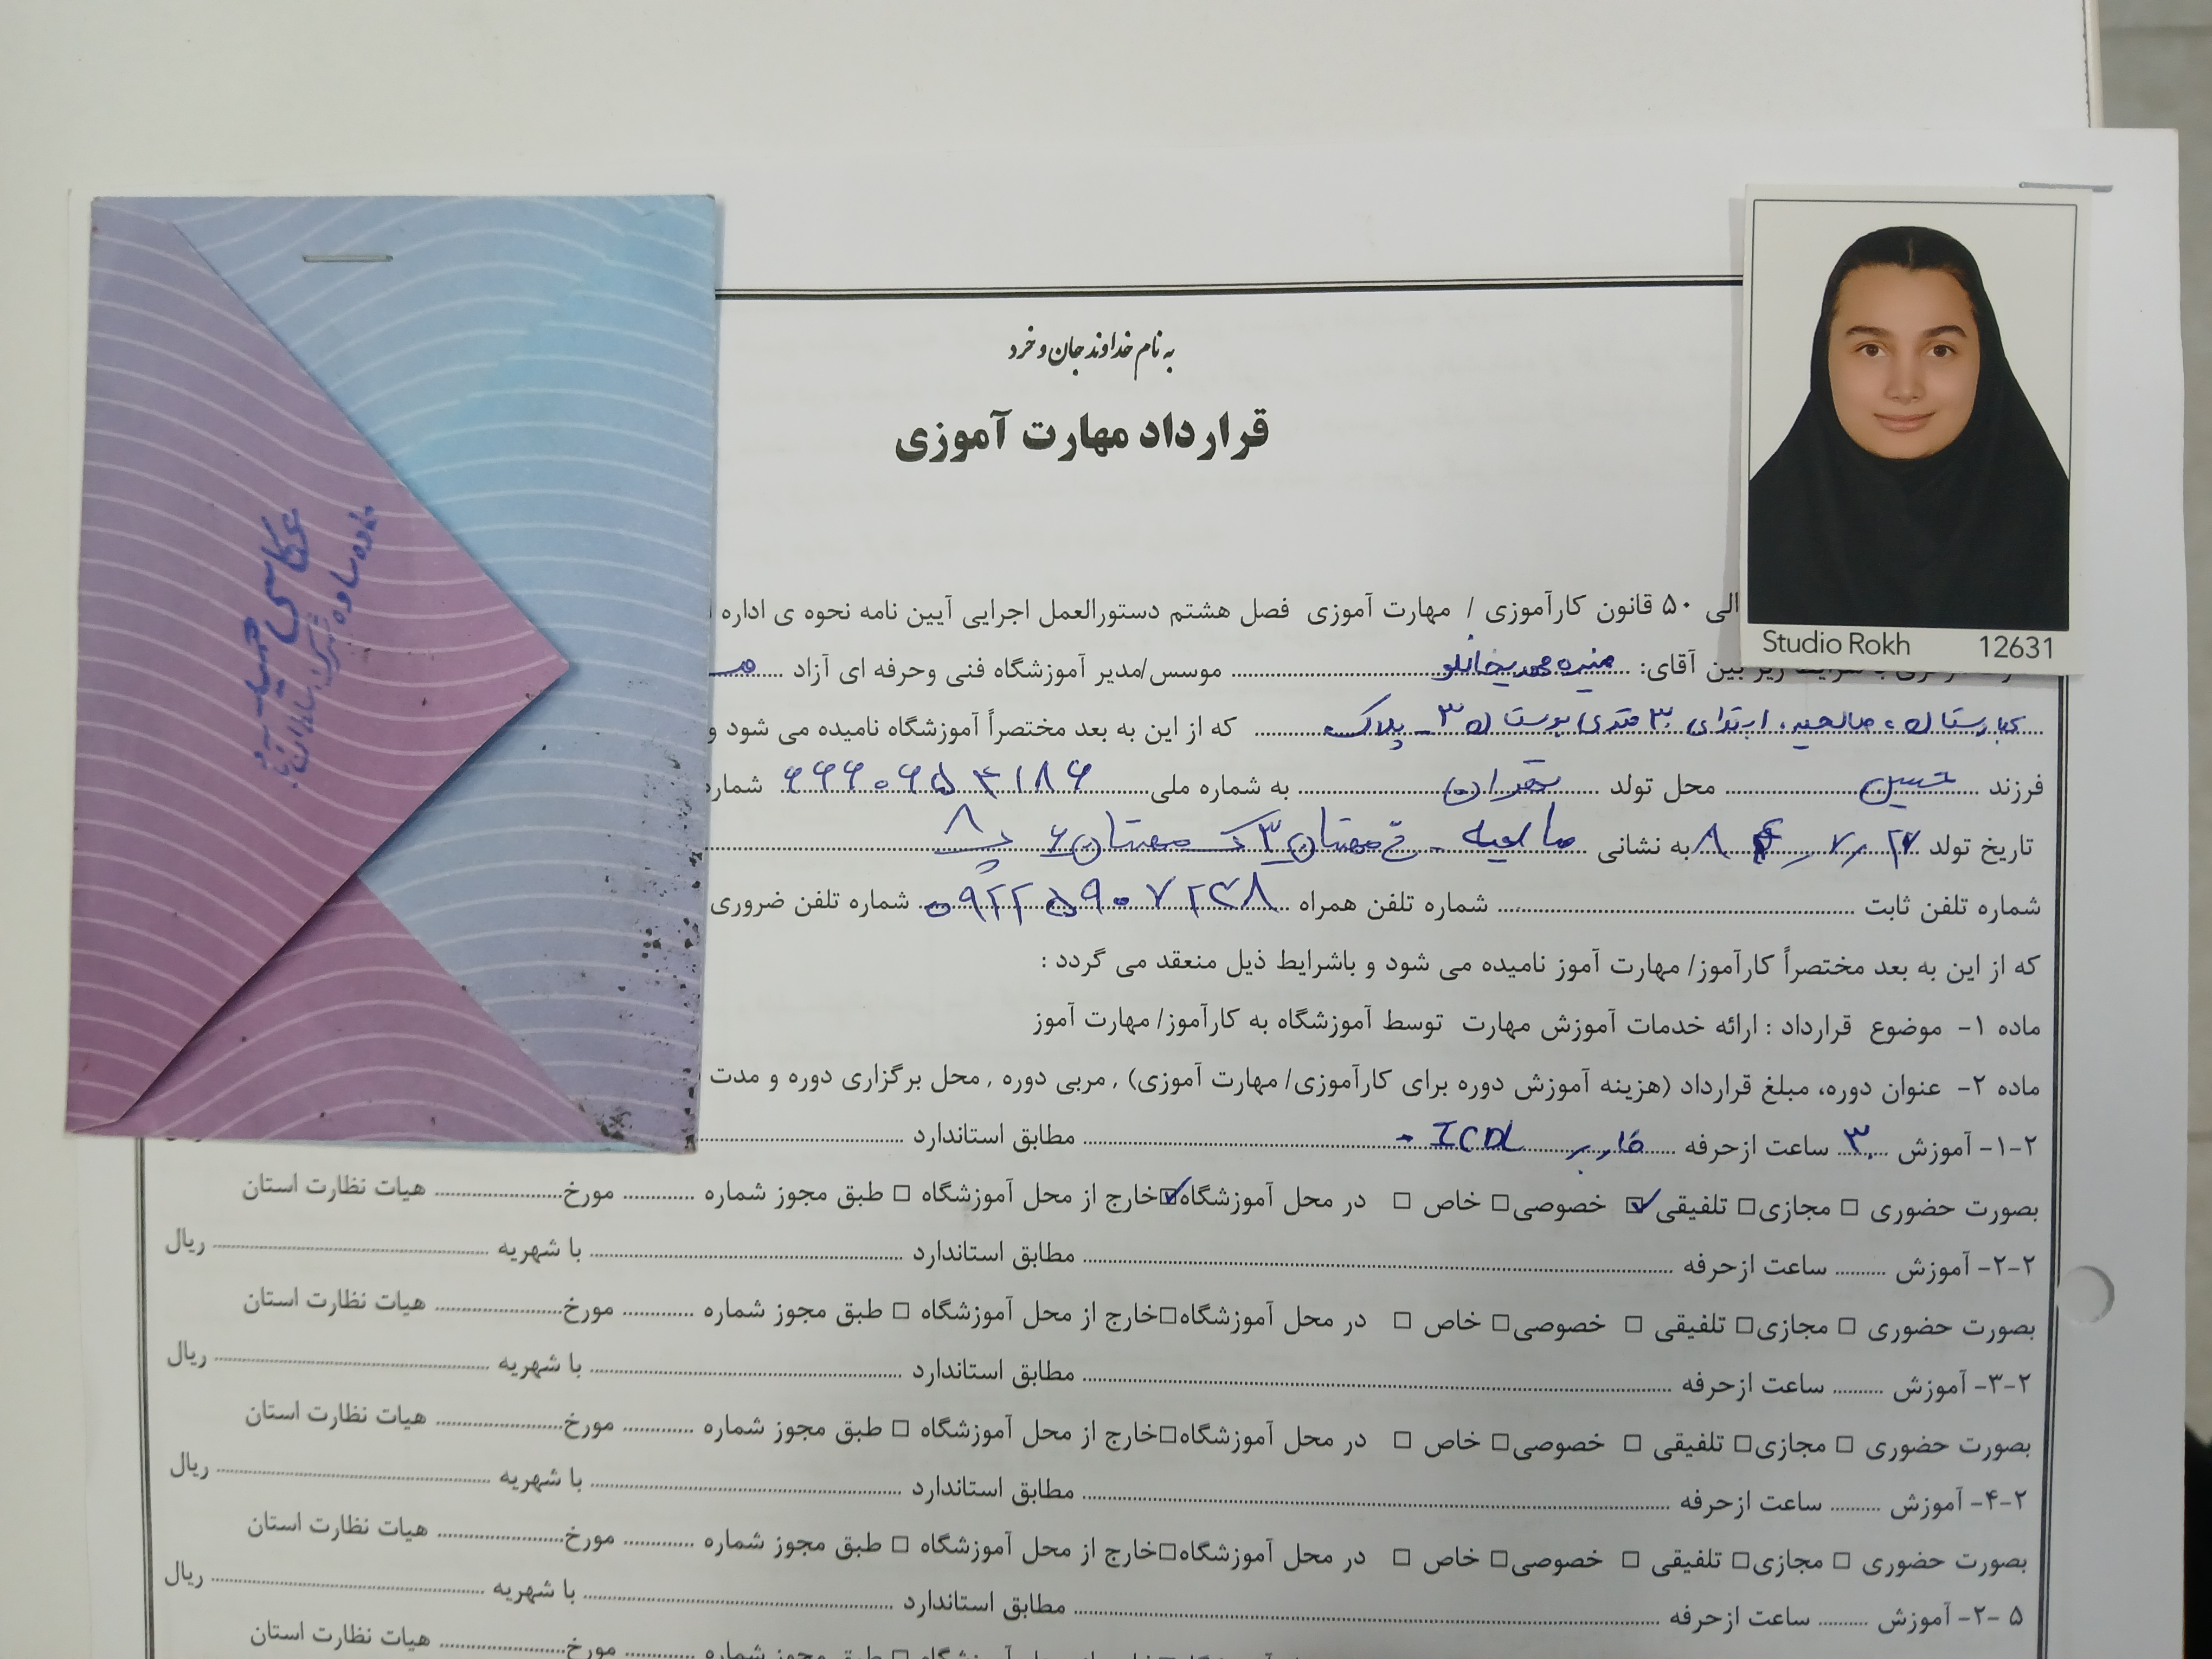 به نام خداوند جان و خرد
قرارداد مهارت آموزی
Studio Rokh 12631
الی ۵۰ قانون کارآموزی / مهارت آموزی فصل هشتم دستورالعمل اجرایی آیین نامه نحوه ی اداره
بین آقای: منیره محمدیخانلو موسس/مدیر آموزشگاه فنی وحرفه ای آزاد
بهارستان، صالحیه، ابتدای ۳۰ متری بوستان ۳ - پلاک که از این به بعد مختصراً آموزشگاه نامیده می شود و
فرزند حسین محل تولد تهران به شماره ملی ۶۶۶۰۶۵۴۱۸۶ شماره
تاریخ تولد به نشانی صالحیه - خ مهستان ۳ ک مهستان ۶ پ ۸
شماره تلفن ثابت شماره تلفن همراه ۰۹۲۲۵۹۰۷۲۳۸ شماره تلفن ضروری
که از این به بعد مختصراً کارآموز/ مهارت آموز نامیده می شود و باشرایط ذیل منعقد می گردد :
ماده ۱- موضوع قرارداد : ارائه خدمات آموزش مهارت توسط آموزشگاه به کارآموز/ مهارت آموز
ماده ۲- عنوان دوره، مبلغ قرارداد (هزینه آموزش دوره برای کارآموزی/ مهارت آموزی) , مربی دوره , محل برگزاری دوره و مدت
۲-۱- آموزش ۳۰ ساعت ازحرفه کاربر ICDL مطابق استاندارد
بصورت حضوری □ مجازی□ تلفیقی☑ خصوصی□ خاص □ در محل آموزشگاه☑خارج از محل آموزشگاه □ طبق مجوز شماره ............ مورخ...................... هیات نظارت استان
۲-۲- آموزش .......... ساعت ازحرفه ........ مطابق استاندارد ........ با شهریه ........ ریال
بصورت حضوری □ مجازی□ تلفیقی □ خصوصی□ خاص □ در محل آموزشگاه□خارج از محل آموزشگاه □ طبق مجوز شماره ............ مورخ...................... هیات نظارت استان
۲-۳- آموزش .......... ساعت ازحرفه ........ مطابق استاندارد ........ با شهریه ........ ریال
بصورت حضوری □ مجازی□ تلفیقی □ خصوصی□ خاص □ در محل آموزشگاه□خارج از محل آموزشگاه □ طبق مجوز شماره ............ مورخ...................... هیات نظارت استان
۲-۴- آموزش .......... ساعت ازحرفه ........ مطابق استاندارد ........ با شهریه ........ ریال
بصورت حضوری □ مجازی□ تلفیقی □ خصوصی□ خاص □ در محل آموزشگاه□خارج از محل آموزشگاه □ طبق مجوز شماره ............ مورخ...................... هیات نظارت استان
۲- ۵- آموزش .......... ساعت ازحرفه ........ مطابق استاندارد ........ با شهریه ........ ریال
طبق مجوز شماره ............ مورخ...................... هیات نظارت استان
عکاسی